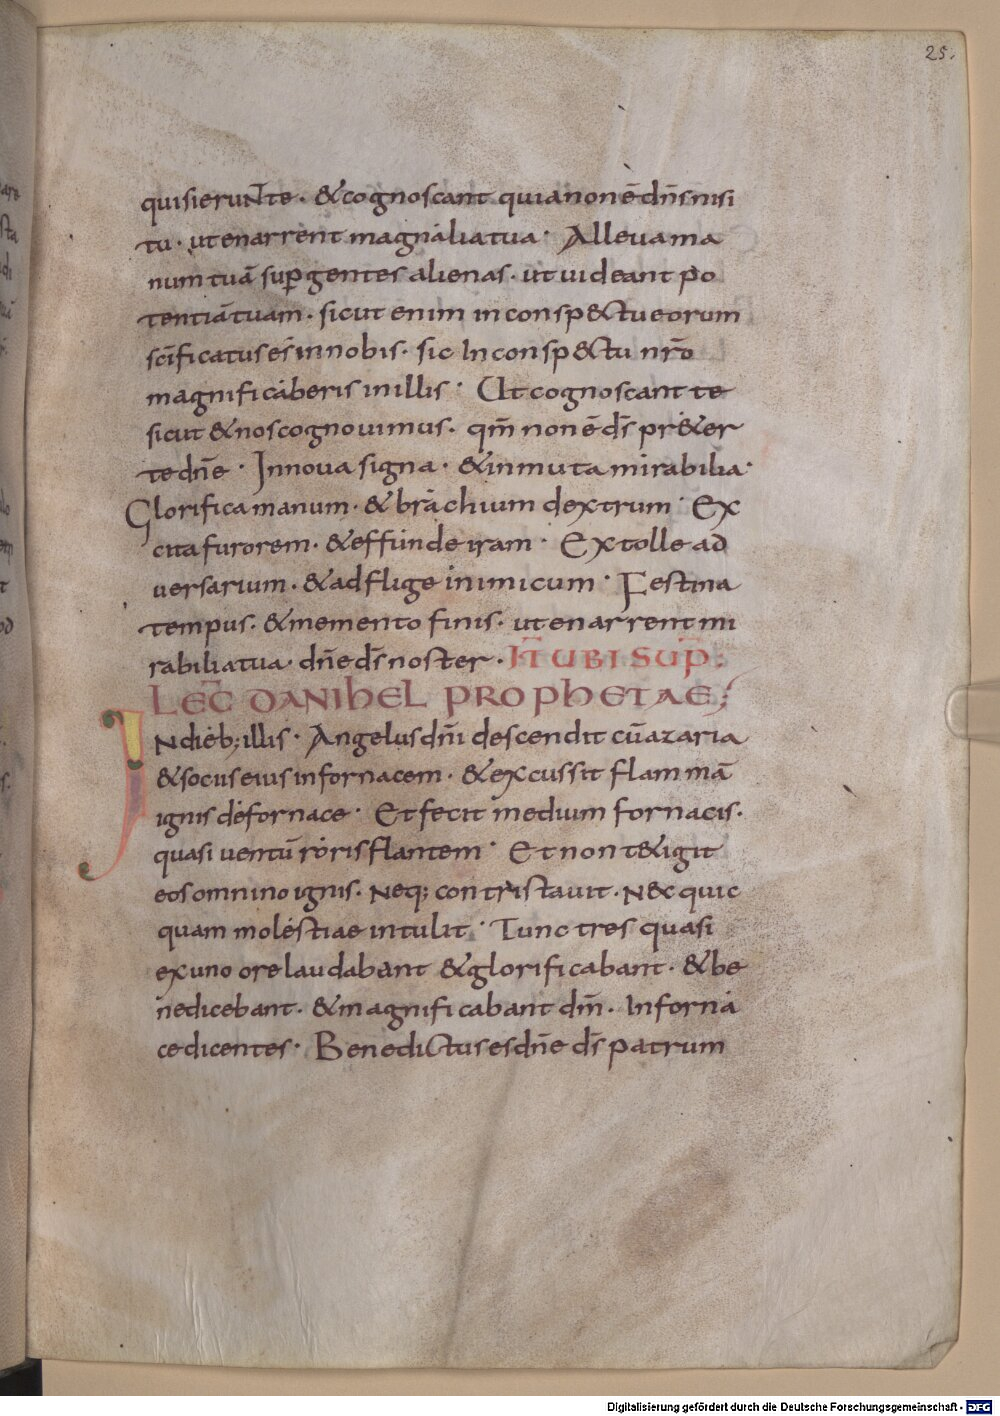 25.
quisierunt te · & cognoscant quia non ē dn̄s nisi
tu · ut enarrent magnalia tua · Alleua ma
num tuā sup̄ gentes alienas · ut uideant po
tentiā tuam · sicut enim in consp&ctu eorum
sc̄ificatus es in nobis · sic In consp&ctu nr̄o
magnificaberis in illis · Ut cognoscant te
sicut & nos cognouimus · qm̄ non ē ds̄ pr&er
te dn̄e · Innoua signa · & inmuta mirabilia ·
Glorifica manum · & brachium dextrum · Ex
cita furorem · & effunde iram · Extolle ad
uersarium · & adflige inimicum · Festina
tempus · & memento finis · ut enarrent mi
rabilia tua · dn̄e ds̄ noster · IT̄ UBI SUP̄:
LEC̄ DANIHEL PROPHETAE;
IN dieb; illis · Angelus dn̄i descendit cū azaria
& socus eius in fornacem · & excussit flammā
ignis de fornace · Et fecit medium fornacis ·
quasi uentū roris flantem · Et non t&igit
eos omnino ignis · Neq; contristauit · N&c quic
quam molestiae intulit · Tunc tres quasi
ex uno ore laudabant & glorificabant · & be
nedicebant · & magnificabant dm̄ · In forna
ce dicentes · Benedictus es dn̄e ds̄ patrum
Digitalisierung gefördert durch die Deutsche Forschungsgemeinschaft - DFG